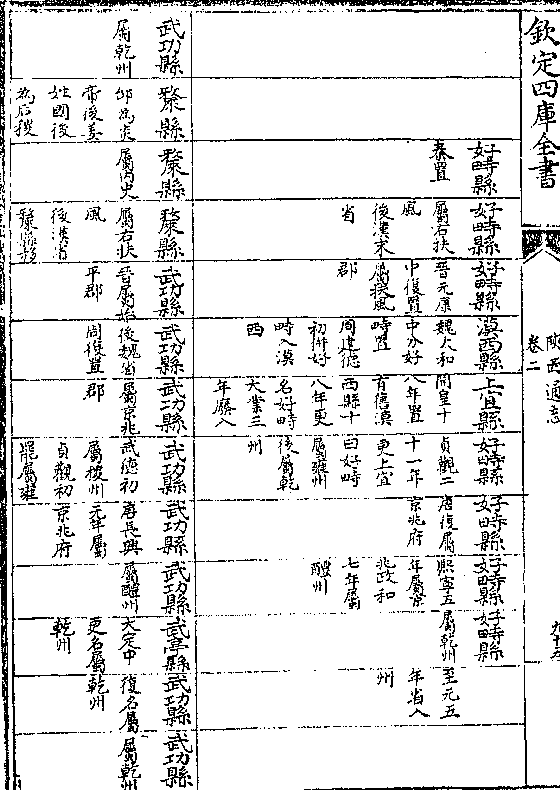 欽定四庫全書
陜西通志
卷二
好畤縣
秦置
好畤縣
屬右扶
風
後漢末
省
好畤縣
晉元康
中復置
屬扶風
郡
漠西縣
魏大和
中分好
畤置
周建德
初併好
畤入漠
西
上宜縣
開皇十
八年置
有德漠
西縣十
八年更
名好畤
大業三
年廢入
好畤縣
貞觀二
十一年
更上宜
曰好畤
屬雍州
後屬乾
州
好畤縣
唐復屬
京兆府
好畤縣
熙寧五
年屬京
兆政和
七年屬
醴州
好畤縣
屬乾州
至元五
年省入
州
武功縣
屬乾州
斄縣
邰為炎
帝後姜
姓國後
為后稷
斄縣
屬內史
斄縣
屬右扶
風
後漢省
斄縣移
武功縣
晉屬始
平郡
武功縣
後魏省
周復置
武功縣
屬京兆
郡
武功縣
武德初
屬稷州
貞觀初
罷屬雍
武功縣
唐長興
元年屬
京兆府
武功縣
屬醴州
武亭縣
大定中
更名屬
乾州
武功縣
復名屬
乾州
武功縣
屬乾州